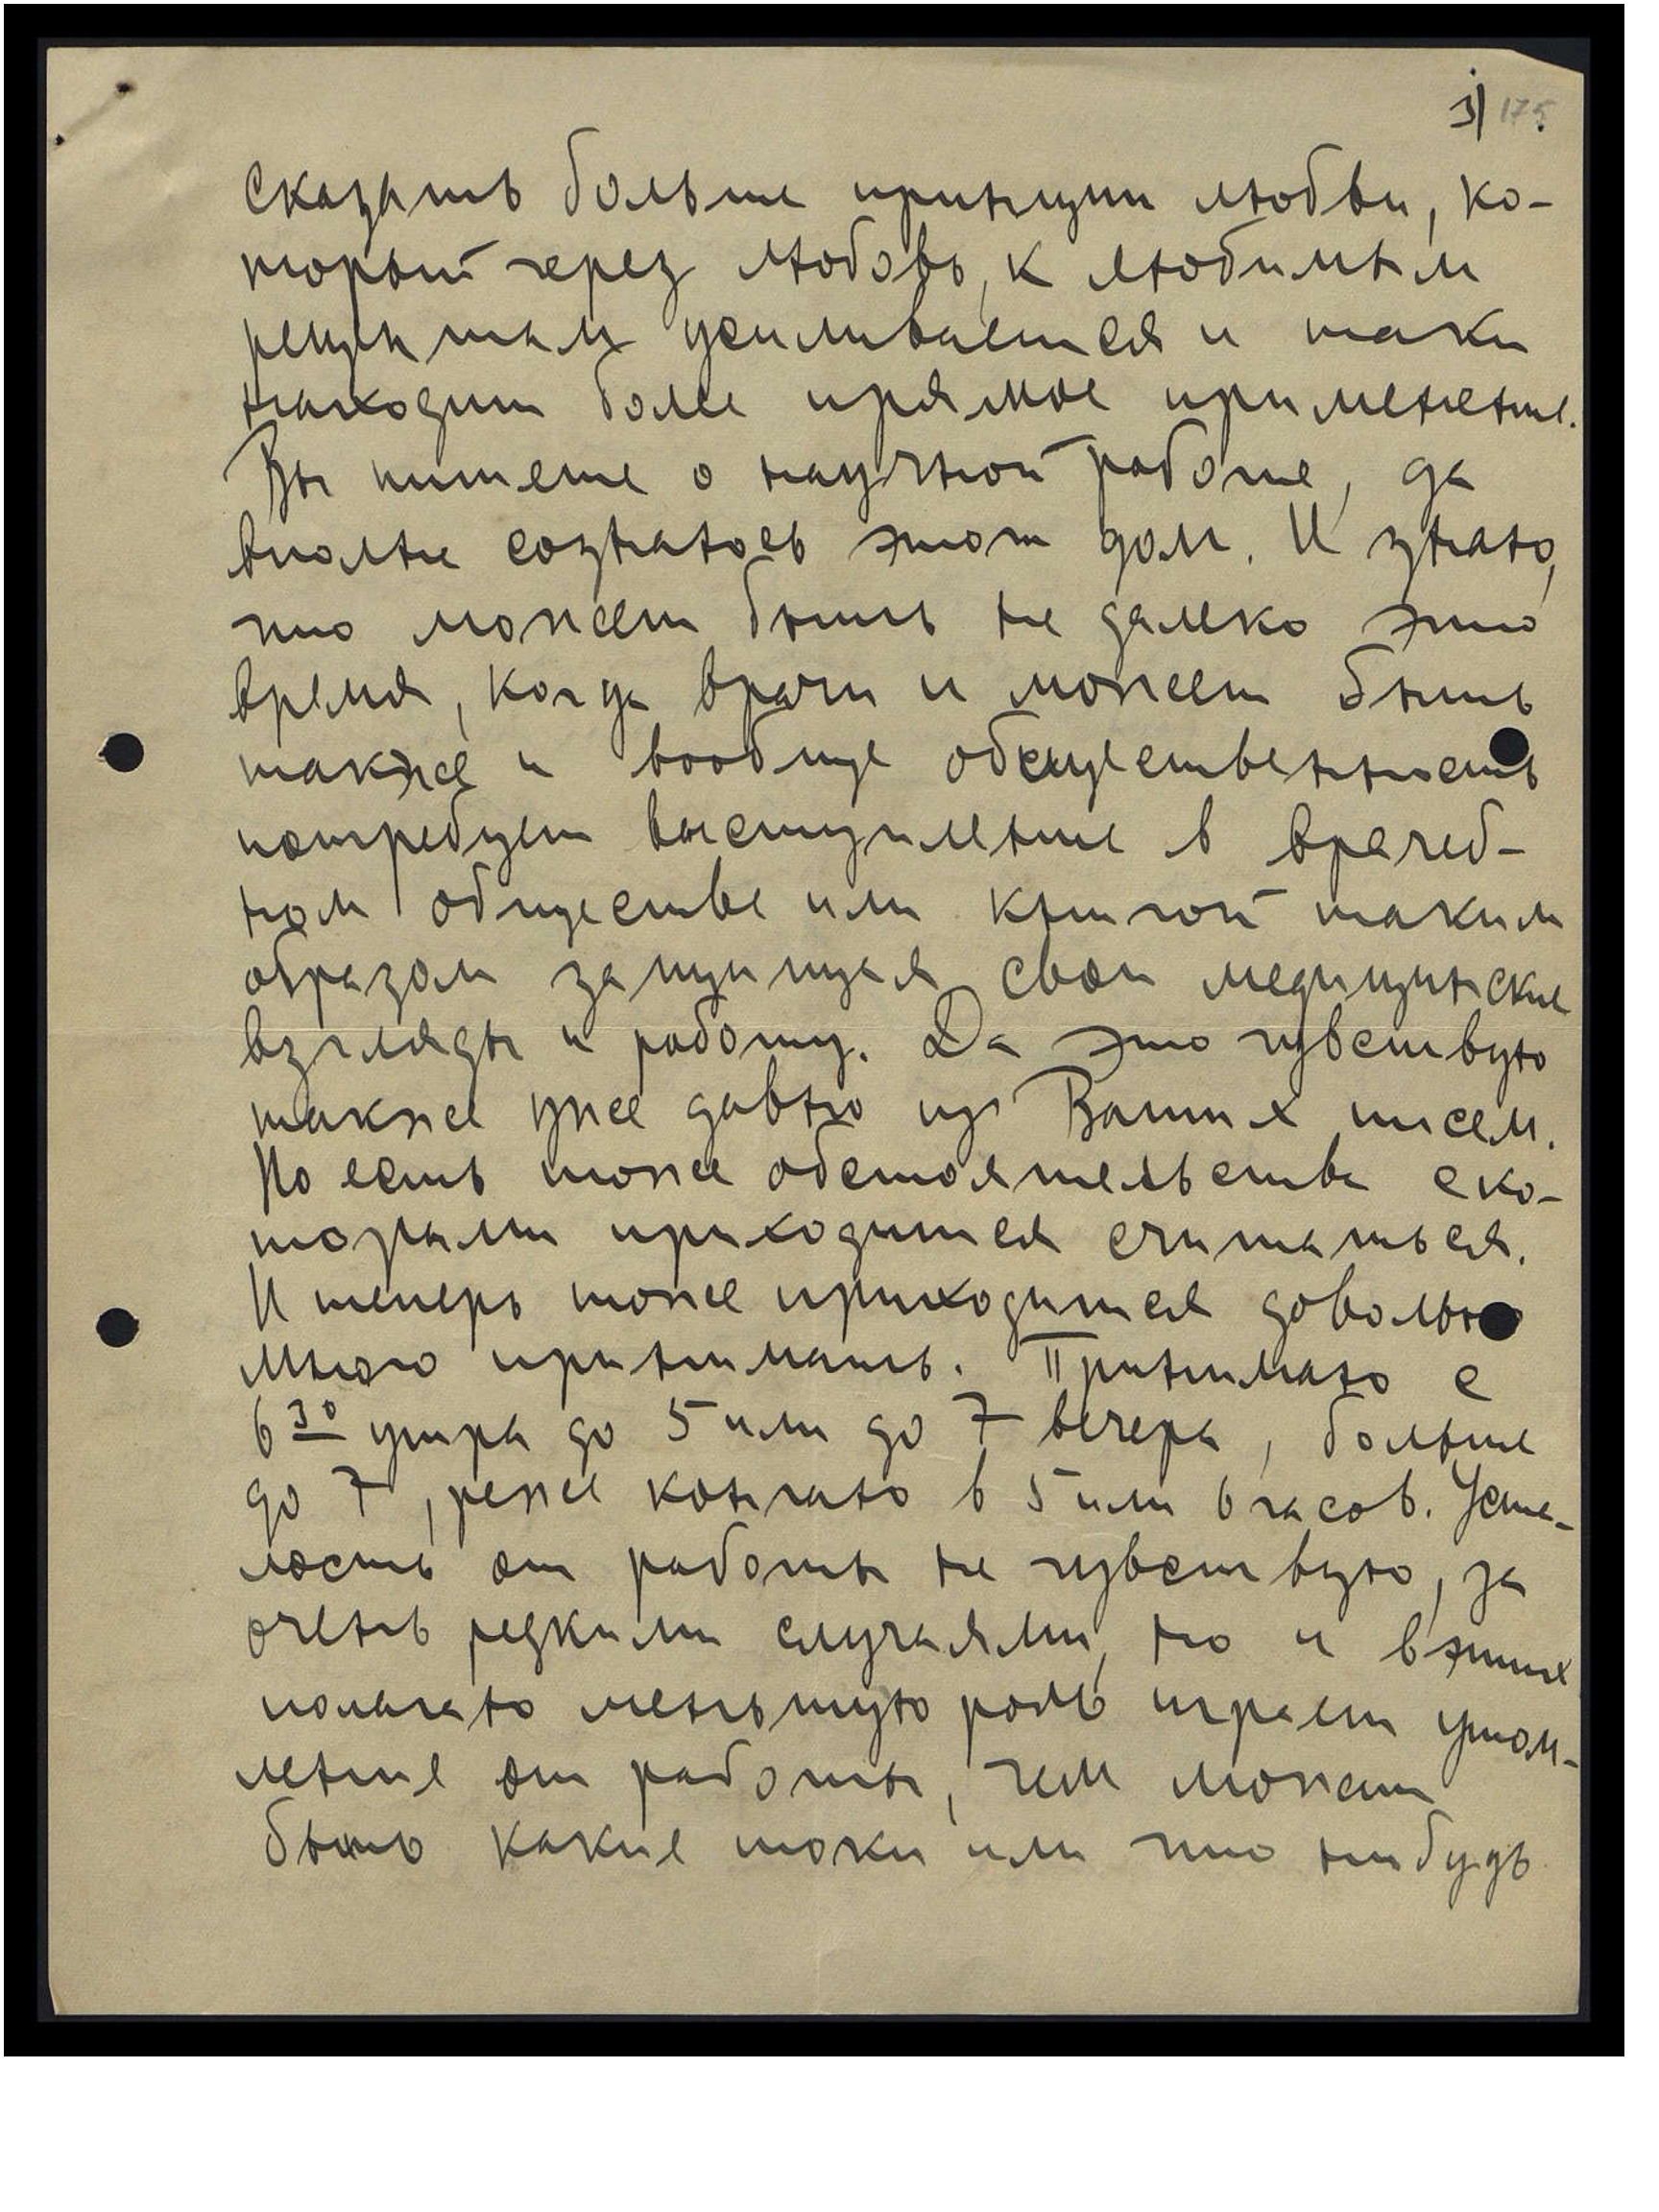 3) 175.
сказать больше принцип любви, ко-
торый через любовь, к любимым
рецептам усиливается и таки
находит более прямое применение.
Вы пишете о научной работе, да
вполне сознаюсь этот долг. И знаю,
что может быть не далеко это
время, когда врачи и может быть
также и вообще общественность
потребует выступление в врачеб-
ном обществе или книгой таким
образом защищая свои медицинские
взгляды и работу. Да это чувствую
также уже давно из Ваших писем.
Но есть тоже обстоятельства с ко-
торыми приходится считаться.
И теперь тоже приходится довольно
много принимать. Принимаю с
6 30 утра до 5 или до 7 вечера, больше
до 7, реже кончаю в 5 или 6 часов. Уста-
лость от работы не чувствую, за
очень редкими случаями, но и в этих
полагаю меньшую роль играет утом-
ление от работы, чем может
быть какие токи или что нибудь